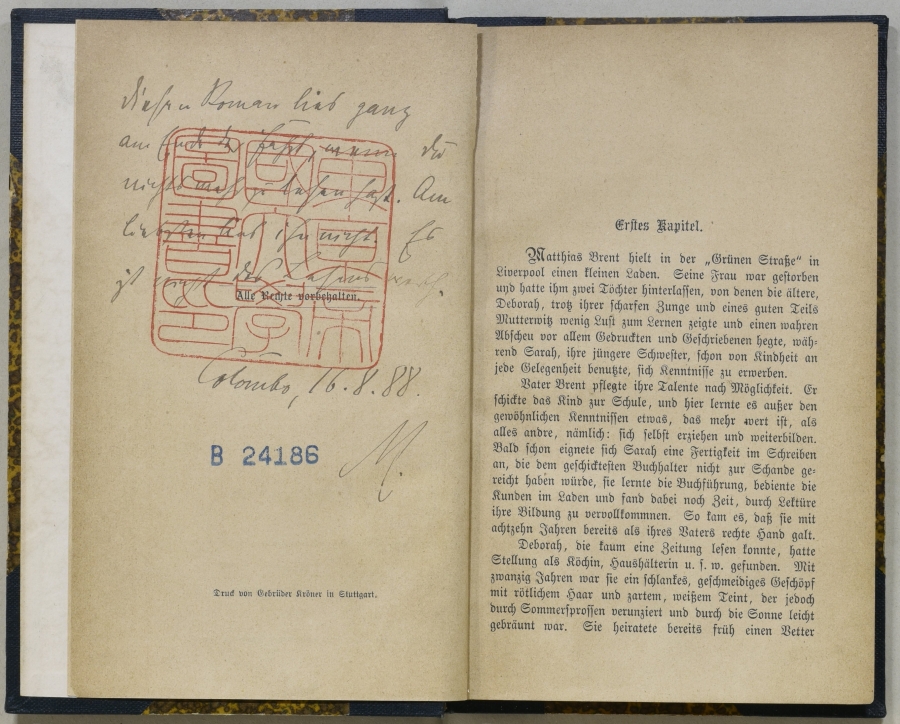 Diesen Roman lies ganz
am Ende der Fahrt, wenn Du
nichts mehr zu lesen hast. Am
liebsten lies ihn nicht. Es
ist nicht des Lesens werth.
Alle Rechte vorbehalten.
Colombo, 16.8.88.
M.
B 24186
Druck von Gebrüder Kröner in Stuttgart.
Erstes Kapitel.
Matthias Brent hielt in der „Grünen Straße“ in
Liverpool einen kleinen Laden. Seine Frau war gestorben
und hatte ihm zwei Töchter hinterlassen, von denen die ältere,
Deborah, trotz ihrer scharfen Zunge und eines guten Teils
Mutterwitz wenig Lust zum Lernen zeigte und einen wahren
Abscheu vor allem Gedruckten und Geschriebenen hegte, wäh-
rend Sarah, ihre jüngere Schwester, schon von Kindheit an
jede Gelegenheit benutzte, sich Kenntnisse zu erwerben.
Vater Brent pflegte ihre Talente nach Möglichkeit. Er
schickte das Kind zur Schule, und hier lernte es außer den
gewöhnlichen Kenntnissen etwas, das mehr wert ist, als
alles andre, nämlich: sich selbst erziehen und weiterbilden.
Bald schon eignete sich Sarah eine Fertigkeit im Schreiben
an, die dem geschicktesten Buchhalter nicht zur Schande ge-
reicht haben würde, sie lernte die Buchführung, bediente die
Kunden im Laden und fand dabei noch Zeit, durch Lektüre
ihre Bildung zu vervollkommnen. So kam es, daß sie mit
achtzehn Jahren bereits als ihres Vaters rechte Hand galt.
Deborah, die kaum eine Zeitung lesen konnte, hatte
Stellung als Köchin, Haushälterin u. s. w. gefunden. Mit
zwanzig Jahren war sie ein schlankes, geschmeidiges Geschöpf
mit rötlichem Haar und zartem, weißem Teint, der jedoch
durch Sommersprossen verunziert und durch die Sonne leicht
gebräunt war. Sie heiratete bereits früh einen Vetter